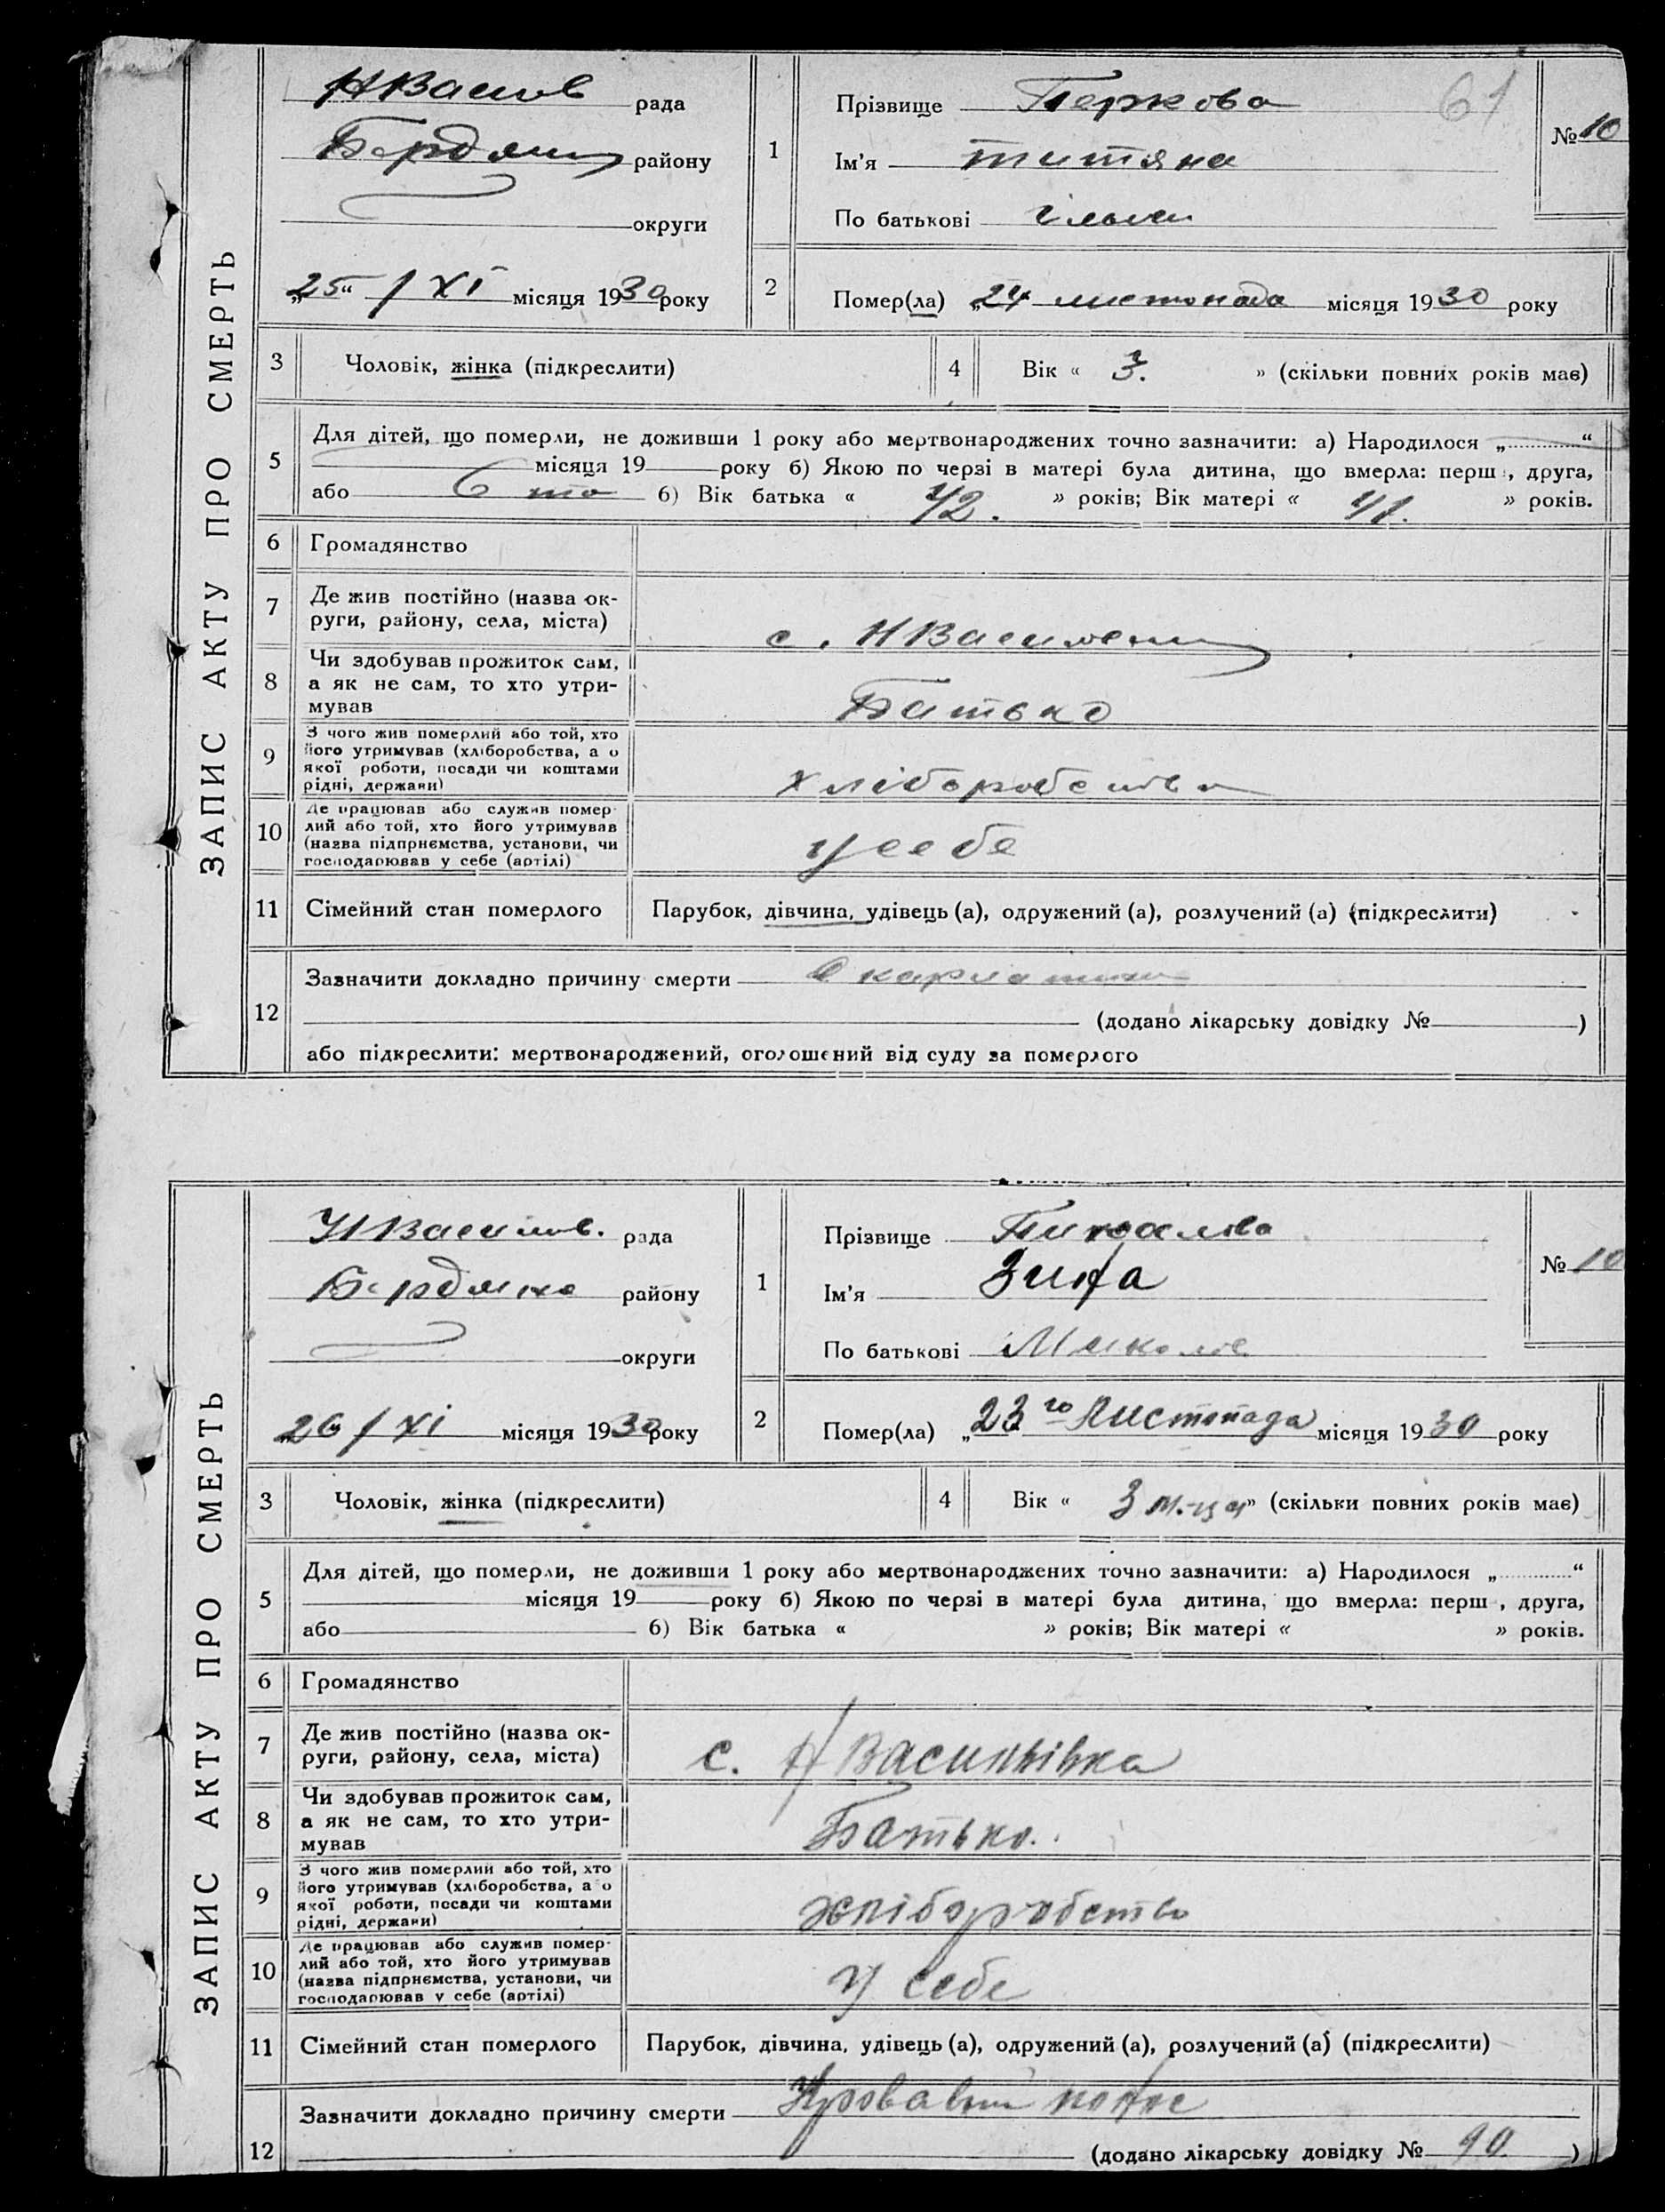 ЗАПИС АКТУ ПРО СМЕРТЬ
НВасил рада
Бердянс району
округи
„25“ / XI місяця 1930 року
1
Прізвище Перкова
61
№ 10
Ім'я Титяна
По батькові
2
Помер(ла) „24 листопада місяця 1930 року
3 Чоловік, жінка (підкреслити)
4 Вік « 3. » (скільки повних років має)
5 Для дітей, що померли, не доживши 1 року або мертвонароджених точно зазначити: а) Народилося „ “
місяця 19 року б) Якою по черзі в матері була дитина, що вмерла: перш , друга,
або 6 та 6) Вік батька « 42. » років; Вік матері « 41. » років.
6 Громадянство
7 Де жив постійно (назва ок-
руги, району, села, міста)
с. НВасил
8 Чи здобував прожиток сам,
а як не сам, то хто утри-
мував
Батько
9 З чого жив померлий або той, хто
його утримував (хліборобства, а о
якої роботи, посади чи коштами
рідні, держави)
хліборобства
10 Де працював або служив помер-
лий або той, хто його утримував
(назва підприємства, установи, чи
господарював у себе (артілі)
усебе
11 Сімейний стан померлого Парубок, дівчина, удівець (а), одружений (а), розлучений (а) (підкреслити)
12 Зазначити докладно причину смерти Скарлатина
(додано лікарську довідку № )
або підкреслити: мертвонароджений, оголошений від суду за померлого
ЗАПИС АКТУ ПРО СМЕРТЬ
НВасилів. рада
Бердянсь району
округи
„26 / XI місяця 1930 року
1
Прізвище
№ 10
Ім'я Зина
По батькові Микол
2
Помер(ла) „23го Листопада місяця 1930 року
3 Чоловік, жінка (підкреслити)
4 Вік « 3 м-ця » (скільки повних років має)
5 Для дітей, що померли, не доживши 1 року або мертвонароджених точно зазначити: а) Народилося „ “
місяця 19 року б) Якою по черзі в матері була дитина, що вмерла: перш , друга,
або 6) Вік батька « » років; Вік матері « » років.
6 Громадянство
7 Де жив постійно (назва ок-
руги, району, села, міста)
с. НВасильівка
8 Чи здобував прожиток сам,
а як не сам, то хто утри-
мував
Батько.
9 З чого жив померлий або той, хто
його утримував (хліборобства, а о
якої роботи, посади чи коштами
рідні, держави)
хліборобство
10 Де працював або служив помер-
лий або той, хто його утримував
(назва підприємства, установи, чи
господарював у себе (артілі)
У себе
11 Сімейний стан померлого Парубок, дівчина, удівець (а), одружений (а), розлучений (а) (підкреслити)
12 Зазначити докладно причину смерти Кровавий понос
(додано лікарську довідку № 90 )